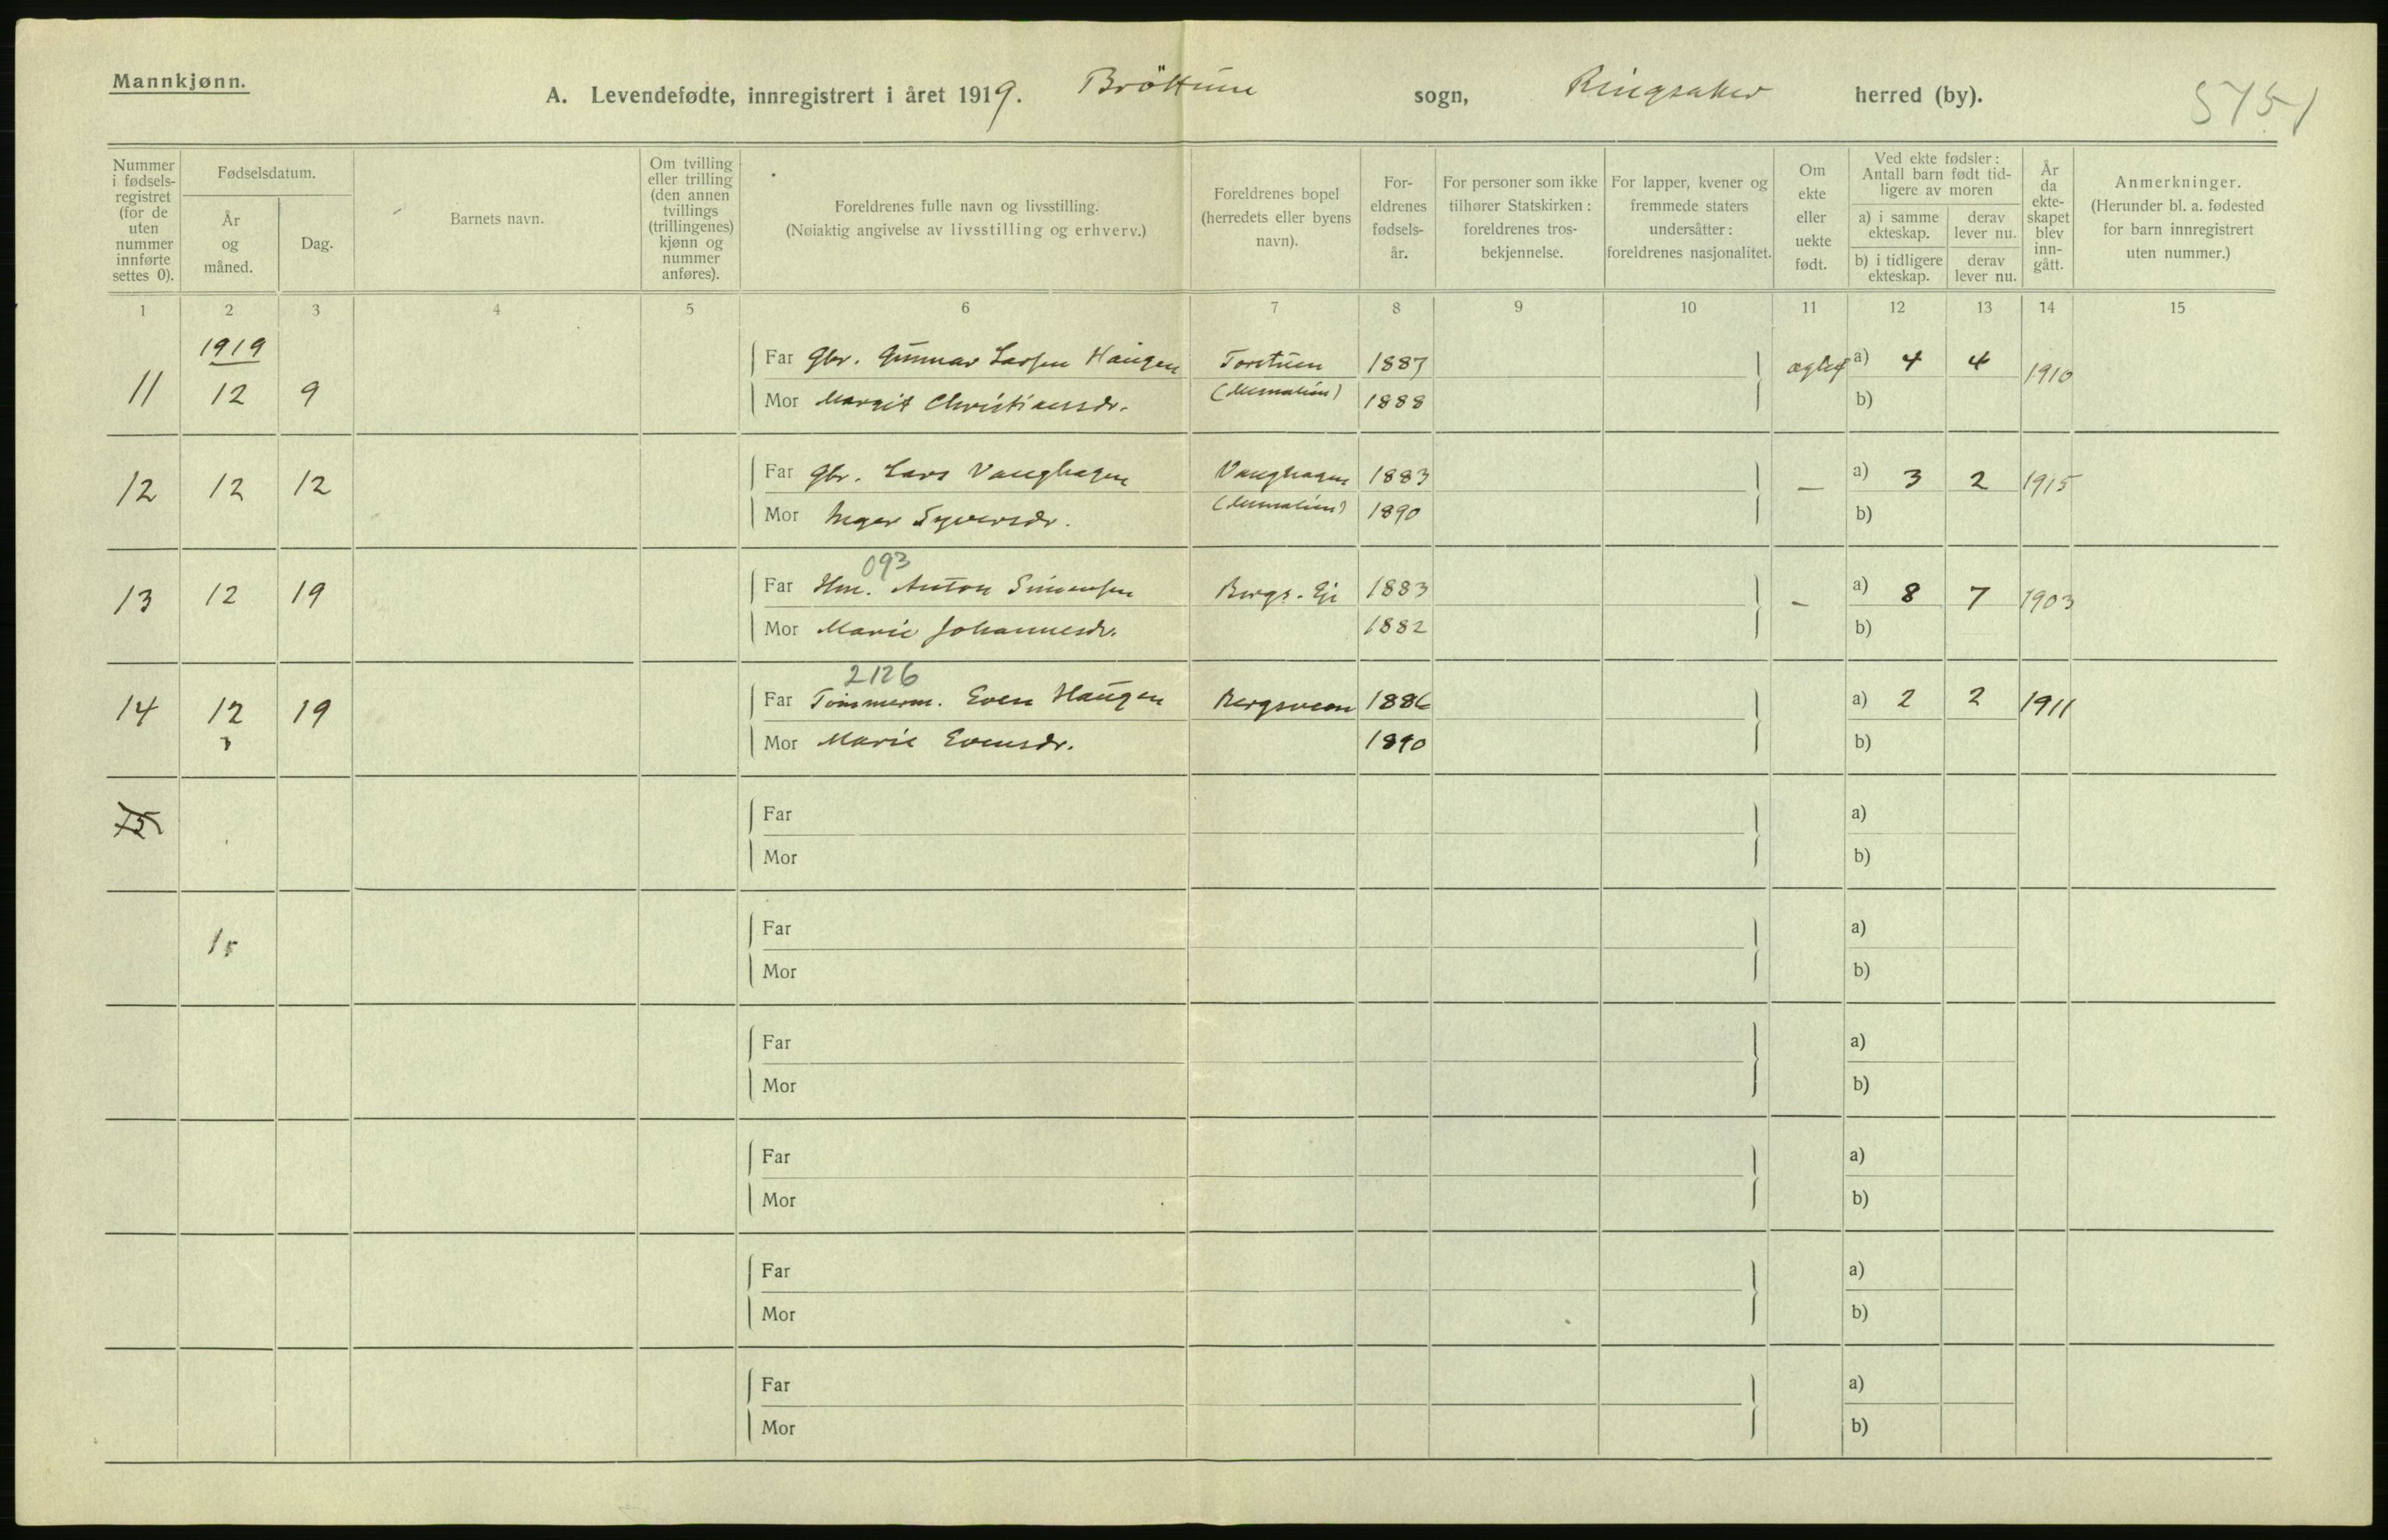 Mannkjønn.
A. Levendefødte, innregistrert i året 1919. Bröttum sogn, Ringsaker herred (by).
5751
Nummer i fødsels-registret (for de uten nummer innførte settes 0).
Fødselsdatum.
År og måned.
Dag.
Barnets navn.
Om tvilling eller trilling (den annen tvillings (trillingenes) kjønn og nummer anføres).
Foreldrenes fulle navn og livsstilling.
(Nøiaktig angivelse av livsstilling og erhverv.)
Foreldrenes bopel (herredets eller byens navn).
For-eldrenes fødsels-år.
For personer som ikke tilhører Statskirken: foreldrenes tros-bekjennelse.
For lapper, kvener og fremmede staters undersåtter: foreldrenes nasjonalitet.
Om ekte eller uekte født.
Ved ekte fødsler: Antall barn født tid-ligere av moren
a) i samme ekteskap.
derav lever nu.
b) i tidligere ekteskap.
derav lever nu.
År da ekte-skapet blev inn-gått.
Anmerkninger.
(Herunder bl. a. fødested for barn innregistrert uten nummer.)
1 2 3 4 5 6 7 8 9 10 11 12 13 14 15
1919
11 12 9 Far Gbr. Gunnar Larsen Haugen Torstuen 1887 ægte a) 4 4 1910
Mor Margit Christiansdr. (Mesnalien) 1888 b)
12 12 12 Far Gbr. Lars Vanghagen Vanghagen 1883 — a) 3 2 1915
Mor Inger Syversdr. (Mesnalien) 1890 b)
093
13 12 19 Far Hm. Anton Simensen Bergs. Eje 1883 — a) 8 7 1903
Mor Marie Johannesdr. 1882 b)
2126
14 12 19 Far Tømmerm. Even Haugen Bergsveen 1886 a) 2 2 1911
Mor Marie Evensdr. 1890 b)
15 Far a)
Mor b)
Far a)
Mor b)
Far a)
Mor b)
Far a)
Mor b)
Far a)
Mor b)
Far a)
Mor b)